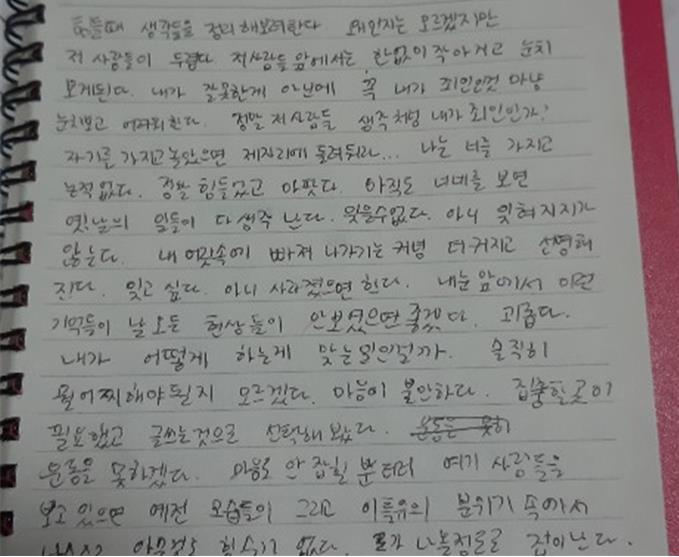 힘들때 생각들을 정리해보려한다 왜인지는 모르겠지만
저 사람들이 두렵다. 저사람들 앞에서는 한없이 작아지고 눈치
보게된다. 내가 잘못한게 아닌데 꼭 내가 죄인인것 마냥
눈치보고 어려워한다. 정말 저사람들 생각처럼 내가 죄인인가?
자기를 가지고 놀았으면 제자리에 돌려둬라... 나는 너를 가지고
논적 없다. 정말 힘들었고 아팟다. 아직도 너네를 보면
옛날의 일들이 다 생각 난다. 잊을수없다. 아니 잊혀지지가
않는다. 내 머릿속에 빠져 나가기는 커녕 더커지고 선명해
진다. 잊고 싶다. 아니 사라졌으면 한다. 내눈 앞에서 이런
기억들이 날 모든 현상들이 안보였으면 좋겠다. 괴롭다.
내가 어떻게 하는게 맞는일인걸까. 솔직히
뭘어찌해야될지 모르겠다. 마음이 불안하다. 집중할곳이
필요했고 글쓰는것으로 선택해 봤다. 운동은 못하
운동을 못하겠다. 마음도 안 잡힐 뿐더러 여기 사람들을
보고 있으면 예전 모습들이 그리고 이특유의 분위기 속에서
아무것도 할수가 없다. 정도로 겁이난다.